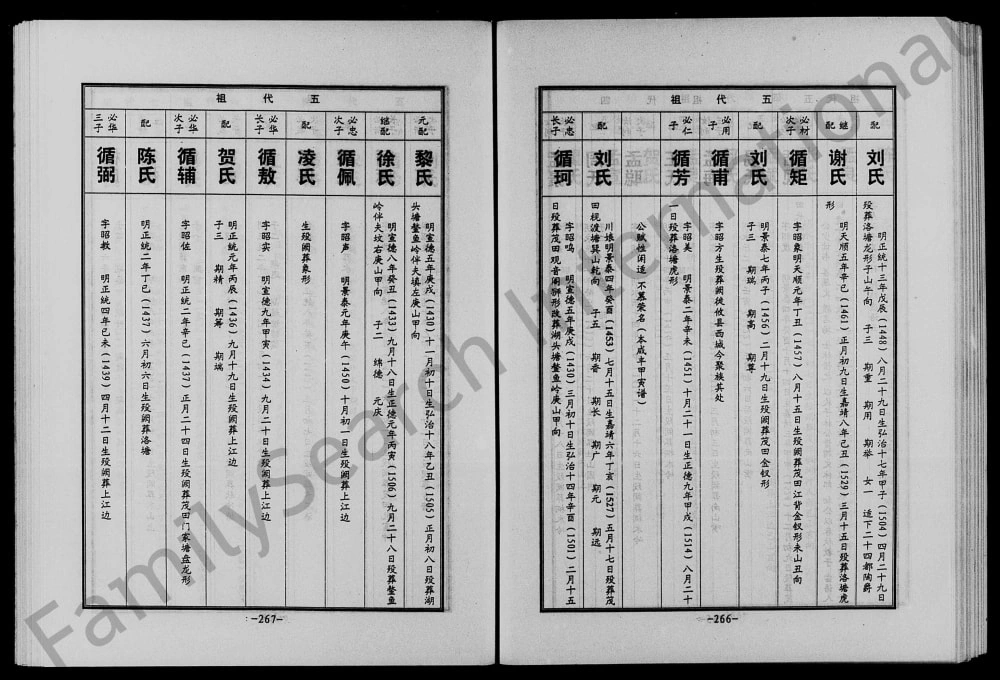 五代祖
配
刘氏
明正统十三年戊辰(1448)八月二十九日生弘治十七年甲子(1504)四月二十九日
殁葬洛塘龙形子山午向 子三 期重 期用 期举 女一 适下二十四都陶爵
继配
谢氏
明天顺五年辛巳(1461)正月初九日生嘉靖八年己丑(1529)三月十五日殁葬洛塘虎
形
必材次子
循矩
字昭象明天顺元年丁丑(1457)八月十五日生殁阙葬茂田江背金钗形未山丑向
配
刘氏
明景泰七年丙子(1456)二月十九日生殁阙葬茂田金钗形
子三 期瑞 期高 期尊
必用子
循甫
字昭方生殁葬阙徙攸县西城今聚族其处
必仁子
循芳
字昭美 明景泰二年辛未(1451)十月二十一日生正德九年甲戌(1514)八月二十
一日殁葬洛塘虎形
公赋性闲适 不慕荣名(本咸丰甲寅谱)
配
刘氏
川娘明景泰四年癸酉(1453)七月十五日生嘉靖六年丁亥(1527)五月十七日殁葬茂
田枧渡塘巽山乾向 子五 期香 期长 期广 期元 期远
必忠长子
循珂
字昭鸣 明宣德五年庚戌(1430)三月初十日生弘治十四年辛酉(1501)二月十五
日殁葬茂田观音阁狮形改葬湖头塘鳌鱼岭庚山甲向
-266-
五代祖
元配
黎氏
明宣德五年庚戌(1430)十一月初十日生弘治十八年乙丑(1505)正月初八日殁葬湖
头塘鳌鱼岭伴夫填左庚山甲向
继配
徐氏
明宣德八年癸丑(1433)九月十八日生正德元年丙寅(1506)九月二十八日殁葬鳌鱼
岭伴夫坟右庚山甲向 子二 绵德 元庆
必忠次子
循佩
字昭声 明景泰元年庚午(1450)十月初一日生殁阙葬上江边
配
凌氏
生殁阙葬象形
必华长子
循敖
字昭实 明宣德九年甲寅(1434)九月二十日生殁阙葬上江边
配
贺氏
明正统元年丙辰(1436)九月十九日生殁阙葬上江边
子三 期精 期筹 期端
必华次子
循辅
字昭佐 明正统二年辛巳(1437)正月二十四日生殁阙葬茂田门家塘盘龙形
配
陈氏
明正统二年丁巳(1437)六月初六日生殁阙葬洛塘
必华三子
循弼
字昭教 明正统四年己未(1439)四月十二日生殁阙葬上江边
-267-
FamilySearch International